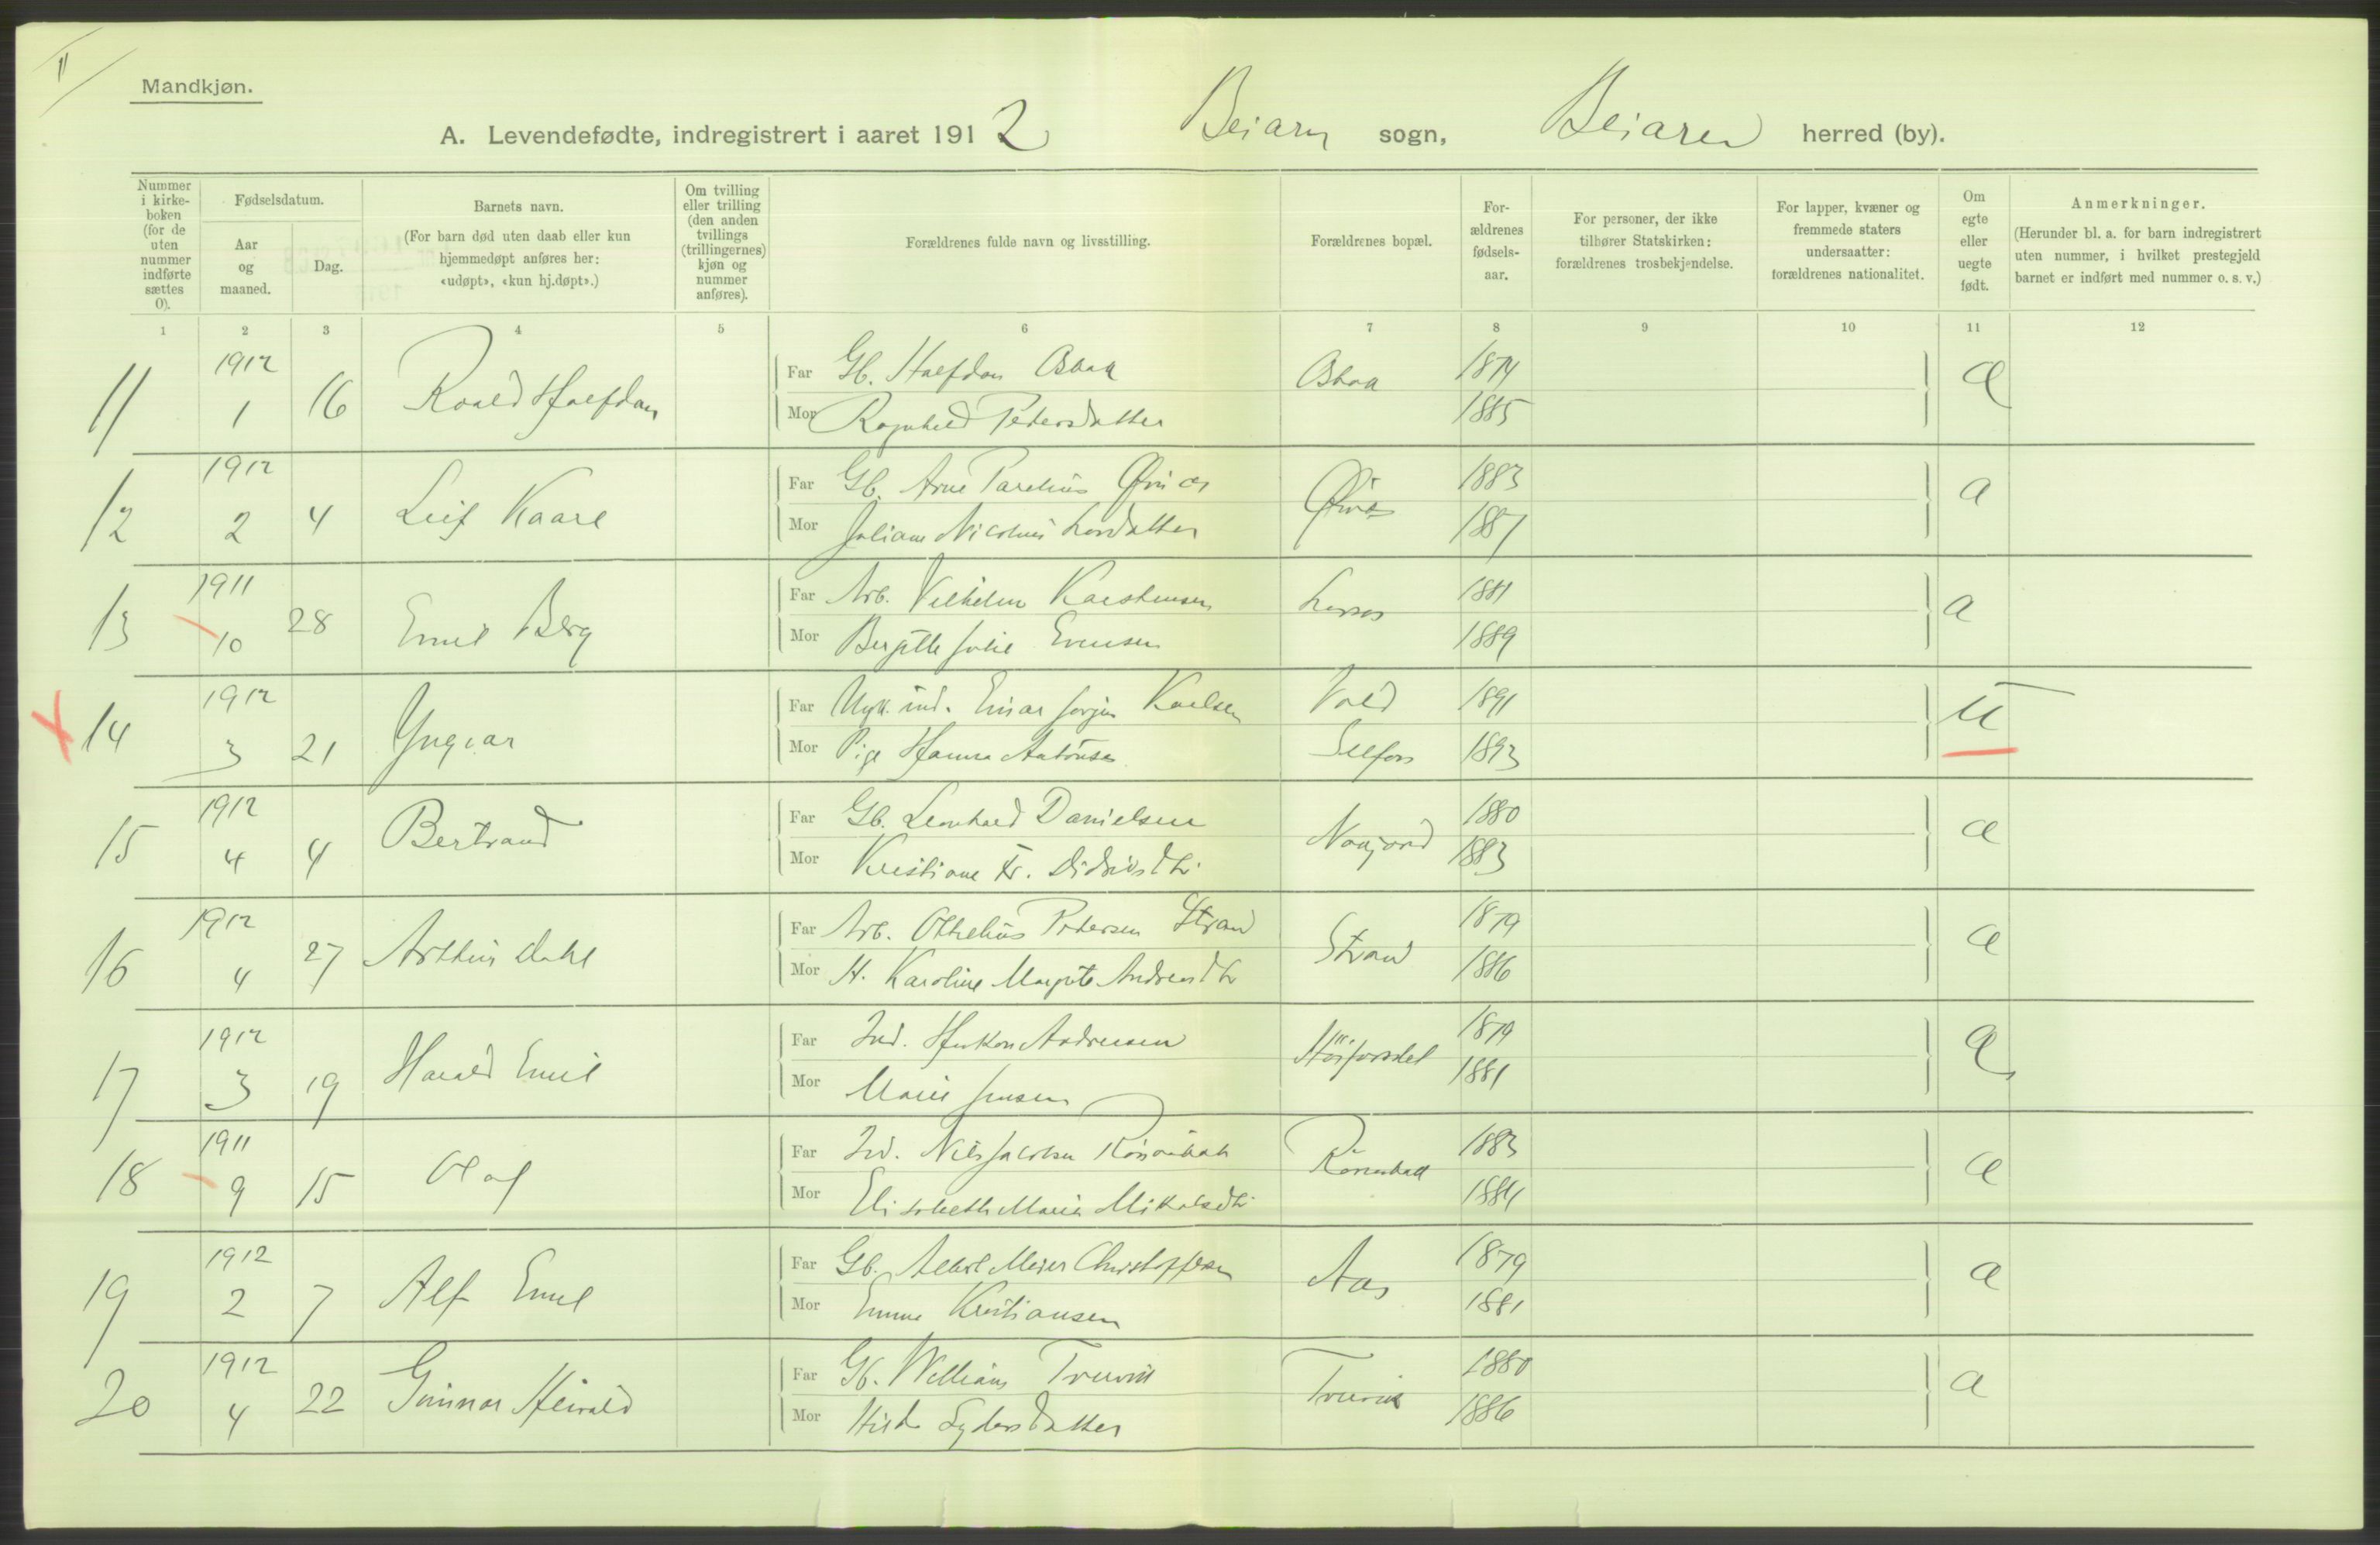 Mandkjøn.
A. Levendefødte, indregistrert i aaret 1912 Beiarn sogn, Beiaren herred (by).
Nummer i kirkeboken (for de uten nummer indførte sættes 0).
Fødselsdatum.
Aar og maaned.
Dag.
Barnets navn.
(For barn død uten daab eller kun hjemmedøpt anføres her: «udøpt», «kun hj.døpt».)
Om tvilling eller trilling (den anden tvillings (trillingernes) kjøn og nummer anføres).
Forældrenes fulde navn og livsstilling.
Forældrenes bopæl.
Forældrenes fødselsaar.
For personer, der ikke tilhører Statskirken: forældrenes trosbekjendelse.
For lapper, kvæner og fremmede staters undersaatter: forældrenes nationalitet.
Om egte eller uegte født.
Anmerkninger.
(Herunder bl. a. for barn indregistrert uten nummer, i hvilket prestegjeld barnet er indført med nummer o. s. v.)
1 2 3 4 5 6 7 8 9 10 11 12
11 1912 1 16 Roald Halfdan
Far Gb. Halfdan Osbak Osbak 1874
Mor Ragnhild Pedersdatter 1885
12 1912 2 4 Leif Kaare
Far Gb. Arne Parelius 1883
Mor Juliane Larsdatter 1887
13 1911 10 28 Emil Berg
Far Arb. Vilhelm Karstensen 1881
Mor Bergitte Julie Evensen 1889
14 1912 3 21 Yngvar
Far Ugift ind. Einar Jørgen Karlsen Vold 1891
Mor Pige Hanna Antonsen Selfors 1893
15 1912 4 4 Bertrand
Far Gb. Leonhard Danielsen 1880
Mor Kristiane Fr. 1883
16 1912 4 27 Arthur Dahl
Far Arb. Othelius Pedersen Strand Strand 1879
Mor H. Karoline Margrete 1886
17 1912 3 19 Harald Emil
Far Ind. Haakon Andreasen 1879
Mor Marie Jensen 1881
18 1911 9 15 Olaf
Far Ind. Nils Jacobsen 1883
Mor Elisabeth Marie 1884
19 1912 2 7 Alf Emil
Far Gb. Albert Meier Christoffersen Aas 1879
Mor Emma Kristiansen 1881
20 1912 4 22 Gunnar Heirald
Far Gb. William Trervik Trervik 1880
Mor Hilda Sydersdatter 1886